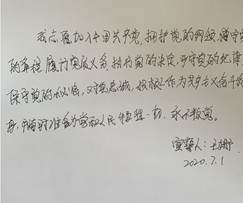 我志愿加入中国共产党，拥护党的纲领，遵守党
的章程，履行党员义务，执行党的决定，严守党的纪律，
保守党的秘密，对党忠诚，积极工作，为共产主义奋斗终
身，随时准备为党和人民牺牲一切，永不叛党。
宣誓人：
2020.7.1